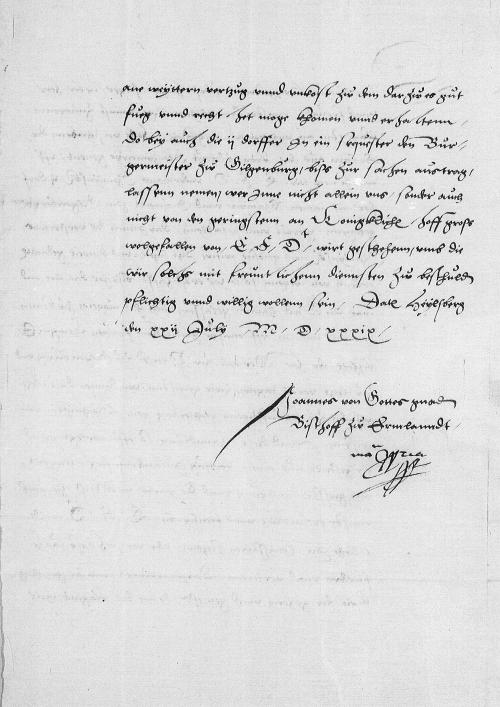 ane weyttern vertzug vnnd vnkost zw dem dar zw es gut
fueg vnnd recht het moge khomen vnnd erhaltenn
Do bey auch die ij dorffer in ein sequester den Bur-
germeister zw Gilgenburg, biss zur sachen austrag,
lassenn nemen, wer Inne nicht allein vns, sonder auch
nicht von den geringstenn an Konigklichem hoff gross
wolgefallen von E F D t wirt geschehenn, vmb die
wir solchs mit freuntlichenn diennsten zw beschulden
pflichtig vnnd willig wollenn sein, Datum Heylsberg
den xxij July M D xxxix
Joannes von Gottes gnaden
Bischoff zw Ermlanndt